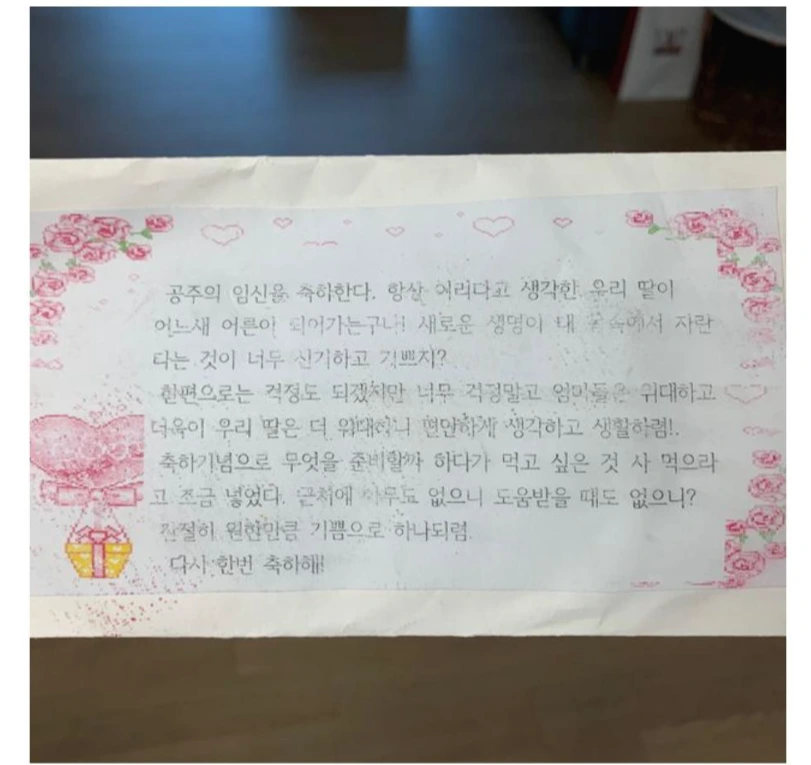 공주의 임신을 축하한다. 항상 어리다고 생각한 우리 딸이
어느새 어른이 되어가는구나! 새로운 생명이 내 속에서 자란
다는 것이 너무 신기하고 기쁘지?
한편으로는 걱정도 되겠지만 너무 걱정말고 엄마들은 위대하고
더욱이 우리 딸은 더 위대하니 편안하게 생각하고 생활하렴!.
축하기념으로 무엇을 준비할까 하다가 먹고 싶은 것 사 먹으라
고 조금 넣었다. 근처에 아무도 없으니 도움받을 때도 없으니?
간절히 원한만큼 기쁨으로 하나되렴.
다시 한번 축하해!